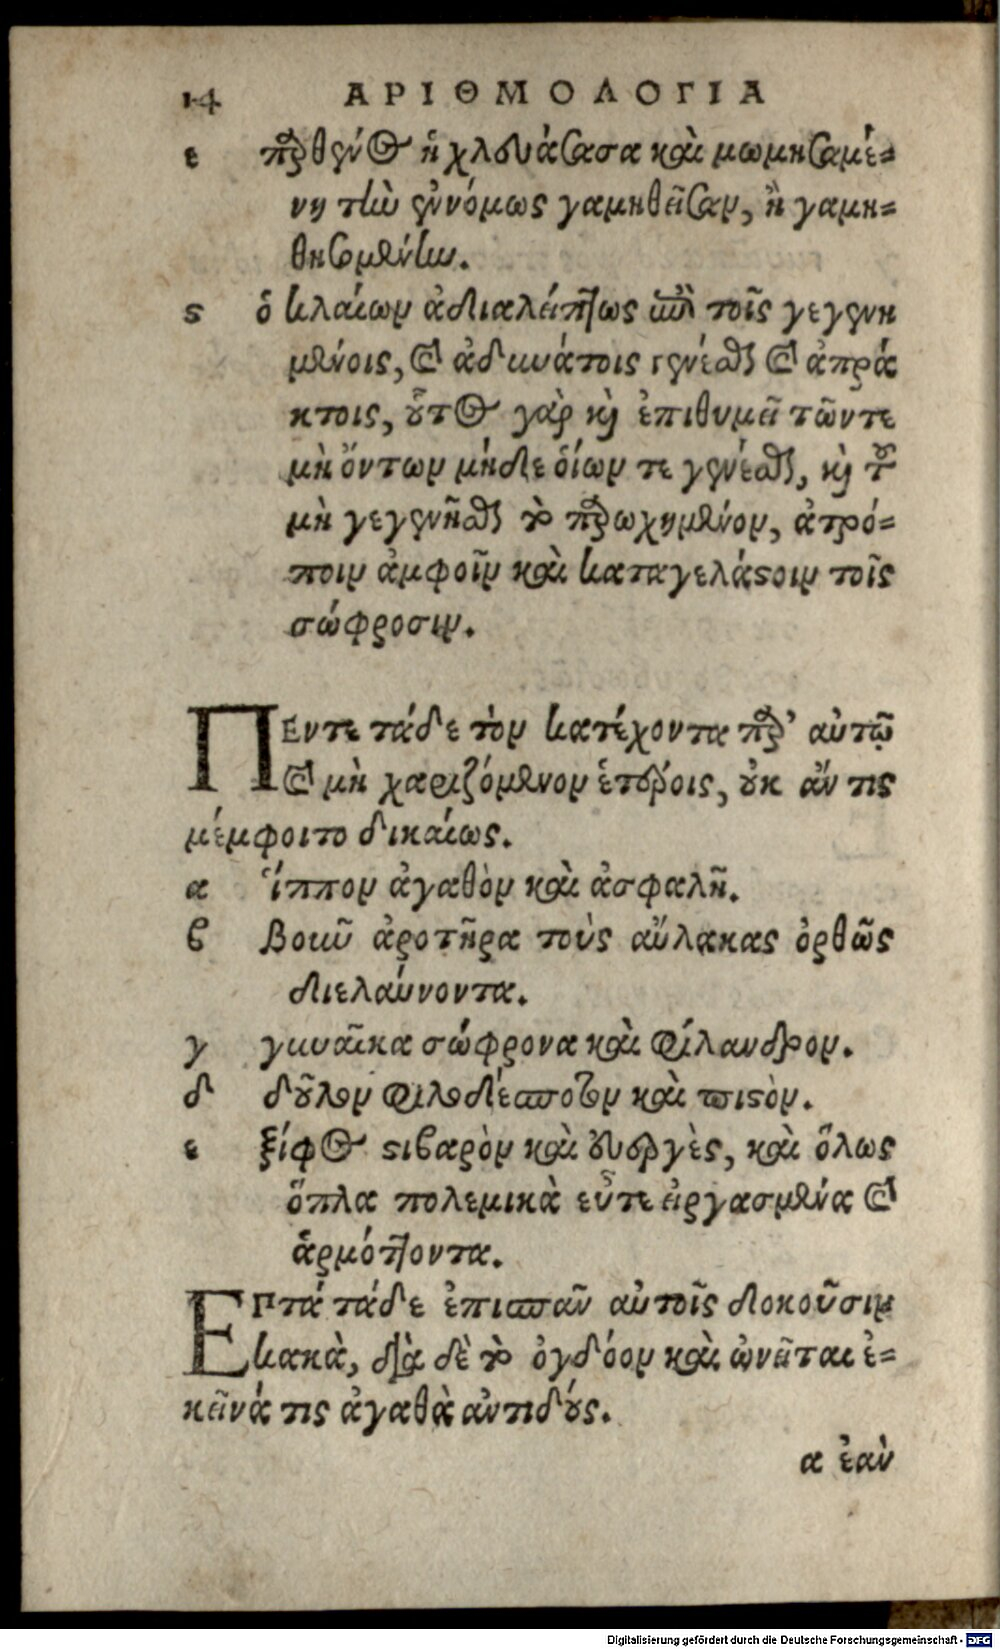 14 ΑΡΙΘΜΟΛΟΓΙΑ
ε παρθένος ἡ χλευάσασα καὶ μωμησαμέ-
νη τὴν ἐννόμως γαμηθεῖσαν, ἢ γαμη-
θησομένην.
ϛ ὁ κλαίων ἀδιαλείπτως ἐπὶ τοῖς γεγενη
μένοις, καὶ ἀδυνάτοις γενέσθαι καὶ ἀπρά
κτοις, οὗτος γὰρ καὶ ἐπιθυμεῖ τῶν τε
μὴ ὄντων μήδε ὁίων τε γενέσθαι, καὶ τοῦ
μὴ γεγενῆσθαι τὸ παρωχημένον, ἀτρό-
ποιν ἀμφοῖν καὶ καταγελάστοιν τοῖς
σώφροσιν.
ΠΕντε τάδε τὸν κατέχοντα παρ' αὑτῷ
καὶ μὴ χαριζόμενον ἑτέροις, οὐκ ἄν τις
μέμφοιτο δικαίως.
α ἵππον ἀγαθὸν καὶ ἀσφαλῆ.
β Βοῦν ἀροτῆρα τοὺς αὔλακας ὀρθῶς
διελαύνοντα.
γ γυναῖκα σώφρονα καὶ φίλανδρον.
δ δοῦλον φιλοδέσποτον καὶ πιστὸν.
ε ξίφος στιβαρὸν καὶ εὐεργὲς, καὶ ὅλως
ὅπλα πολεμικὰ εὖτε εἰργασμένα καὶ
ἁρμόττοντα.
ΕΠτά τάδε ἐπισπᾶν αὑτοῖς δοκοῦσιν
κακὰ, διὰ δὲ τὸ ὀγδόον καὶ ὠνεῖται ἐ-
κεῖνά τις ἀγαθὰ ἀντιδούς.
α ἐὰν
Digitalisierung gefördert durch die Deutsche Forschungsgemeinschaft - DFG